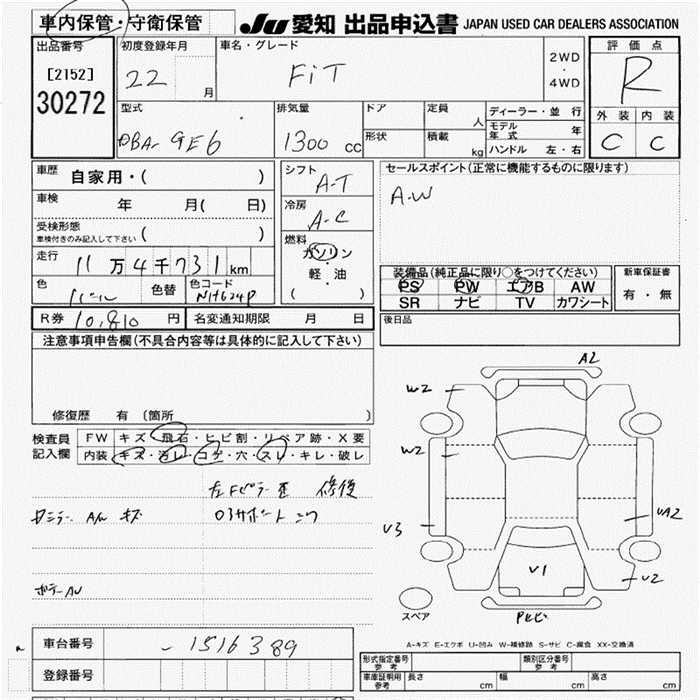 車内保管・守衛保管 JU 愛知 出品申込書 JAPAN USED CAR DEALERS ASSOCIATION
出品番号 初度登録年月 車名・グレード 評価点
[2152] 22 月 FiT 2WD・4WD R
30272 型式 排気量 ドア 定員 人 ディーラー・並行 外装 内装
DBA- GE6 1300 cc 形状 積載 kg モデル年式 年 C C
ハンドル 左・右
車歴 自家用・( ) シフト A-T セールスポイント(正常に機能するものに限ります)
車検 年 月( 日) 冷房 A-C A-W
受検形態 ( )
車検付きのみ記入して下さい
燃料 ガソリン・軽・油 ( )
走行 11万4千731km 装備品(純正品に限り○をつけてください) 新車保証書
色 パール 色替 色コード NH624P PS PW エアB AW 有・無
SR ナビ TV カワシート
R券 10,810円 名変通知期限 月 日 後日品
注意事項申告欄(不具合内容等は具体的に記入して下さい)
修復歴 有 〔箇所 〕
検査員記入欄 FW キズ・飛石・ヒビ割・リペア跡・X要
内装 キズ・汚レ・コゲ・穴・スレ・キレ・破レ
A2
W2
W2
U3
UA2
U2
V1
スペア
左Fピラー 歪 修復
キズ
車台番号 - 1516389
登録番号
A-キズ E-エクボ U-凹み W-補修跡 S-サビ C-腐食 XX-交換済
形式指定番号参考 類別区分番号参考
車庫証明用参考 長さ cm 幅 cm 高さ cm